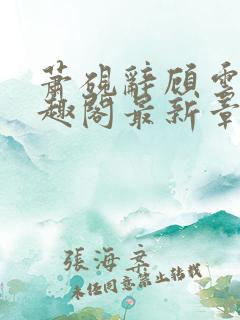 萧砚辞顾云
趣阁最新章
張海文
未经同意禁止转载